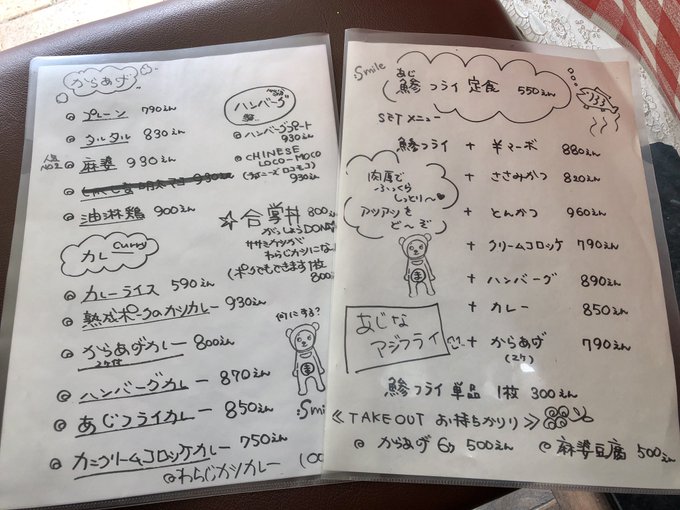 からあげ
プレーン 790えん
タルタル 830えん
人気NO.2
麻婆 930えん
930えん
油淋鶏 900えん
ハンバーグ
ハンバーグプレート
930えん
CHINESE
LOCO-MOCO
(チャイニーズロコモコ)
930えん
☆合掌丼 800えん
がっしょうDON
ササミカツが
わらじカツにな
(ポークでもできます1枚
800
カレー Curry
カレーライス 590えん
熟成ポークのカツカレー 930えん
からあげカレー 800えん
2ケ付
ハンバーグカレー 870えん
あじフライカレー 850えん
カニクリームコロッケカレー 750えん
わらじカツカレー (00
何にする?
:Smile
:Smile
あじ
鯵フライ定食 550えん
SETメニュー
鯵フライ + 半マーボ 880えん
+ ささみかつ 820えん
+ とんかつ 960えん
+ クリームコロッケ 790えん
+ ハンバーグ 890えん
+ カレー 850えん
+ からあげ 790えん
(2ケ)
肉厚で
ふっくら
しっとり~
アツアツを
ど~ぞ
あじな
アジフライ
鯵フライ単品 1枚 300えん
≪TAKEOUT お持ちかえり≫
からあげ 6ケ 500えん
麻婆豆腐 500えん